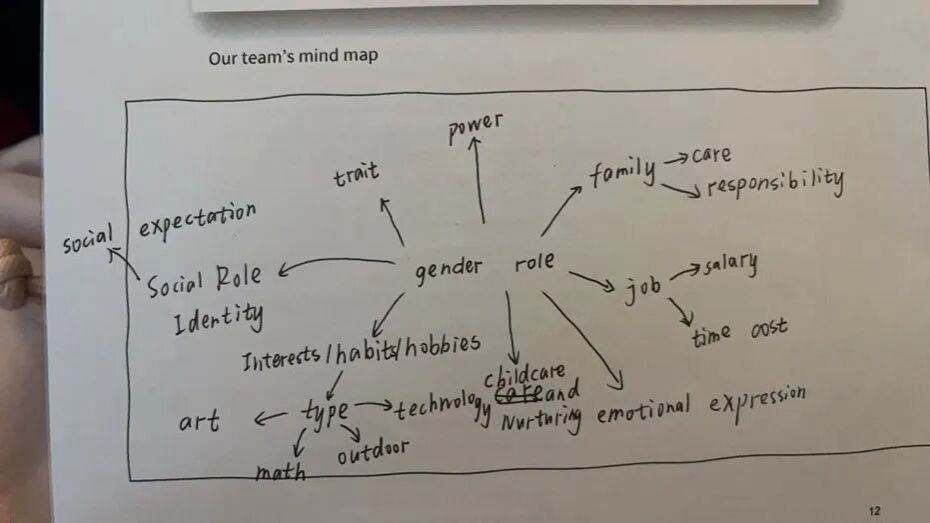 Our team's mind map
power
trait
family → care
→ responsibility
social expectation
Social Role
Identity
gender role
job → salary
→ time cost
Interests/habits/hobbies
childcare
and
Nurturing
emotional expression
art ← type → technology
math
outdoor
12